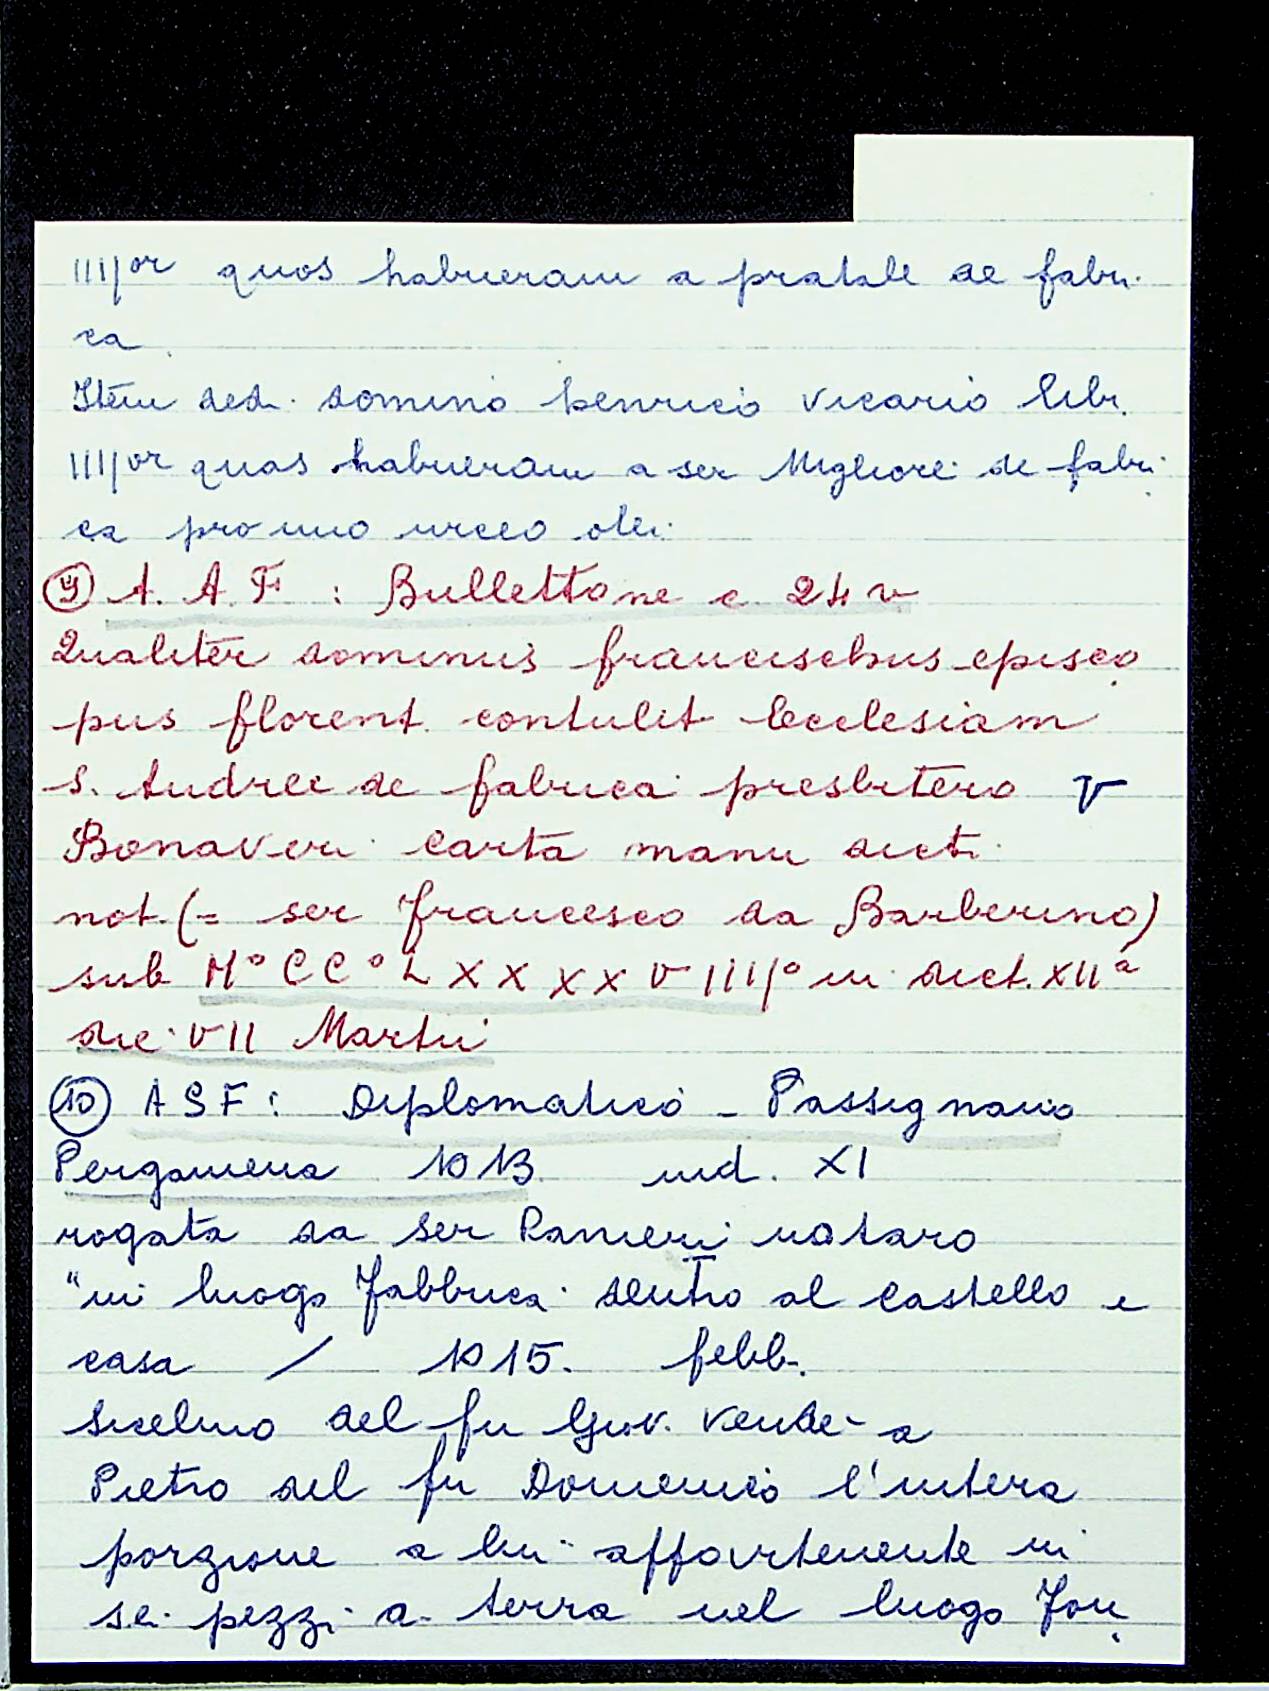 IIIIor quos habueram a pratale de fabri
ca.
Item dedi domino henrico vicario libr.
IIIIor quas habueram a ser Migliore de fabri
ca pro uno urceo olei
9) A. A. F : Bullettone c. 24 v
Qualiter dominus francischus episco
pus florent. contulit Ecclesiam
S. Andree de fabrica presbitero V
Bonaveri carta manu dicti
not. (= ser Francesco da Barberino)
sub M° CC° LXXXXVIIII° indict. XIIª
die VII Martii
10) ASF: Diplomatico - Passignano
Pergamena 1013 ind. XI
rogata da ser Ranieri notaro
"in luogo Fabbrica dentro al castello e
casa / 1015. febb.
Sicelmo del fu Giov. vende a
Pietro del fu Domenico l'intera
porzione a lui appartenente in
sei pezzi di terra nel luogo Fon